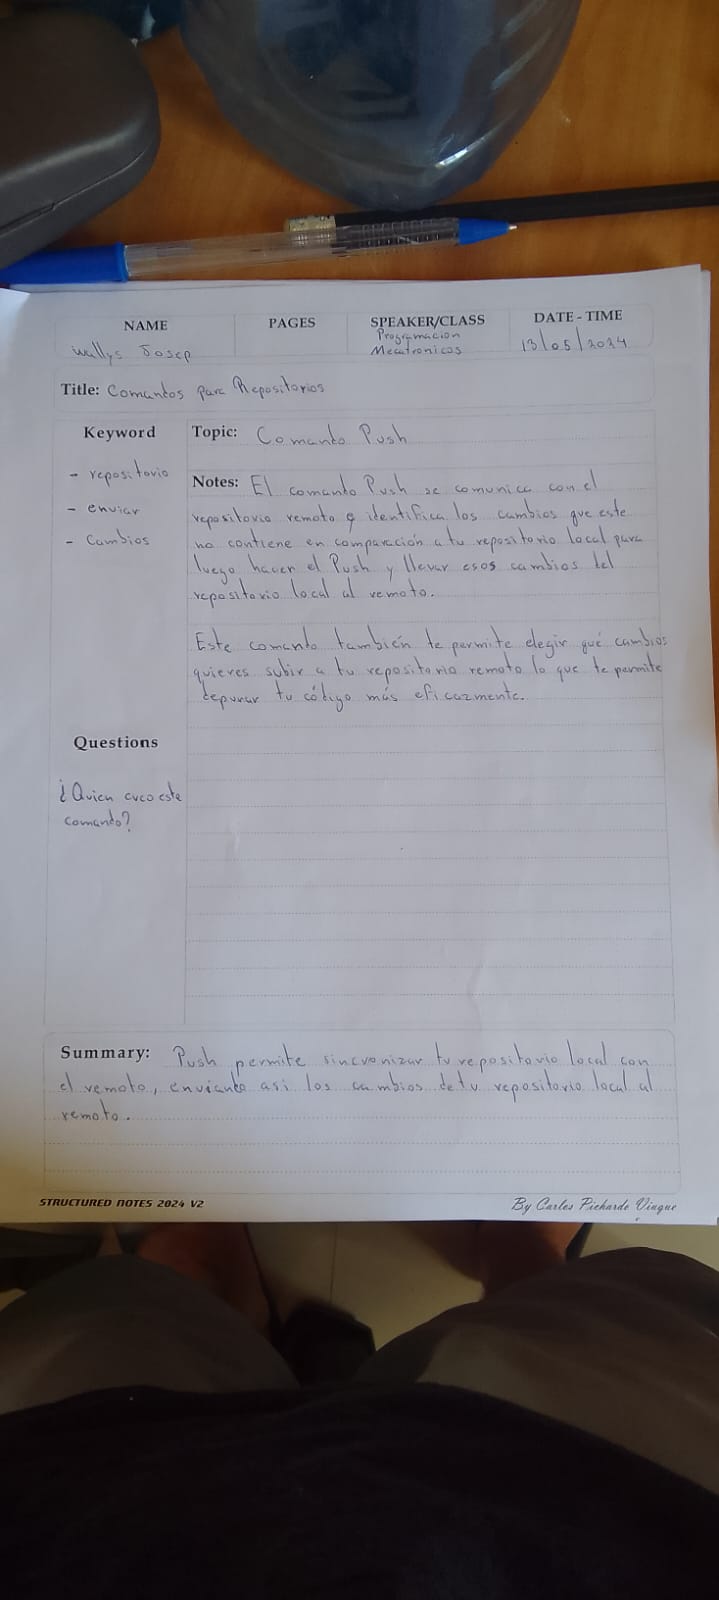 NAME PAGES SPEAKER/CLASS DATE - TIME
Wallys Josep Programacion Mecatronicos 13/05/2024
Title: Comandos para Repositorios
Keyword
- repositorio
- enviar
- Cambios
Topic: Comando Push
Notes: El comando Push se comunica con el
repositorio remoto e identifica los cambios que este
no contiene en comparación a tu repositorio local para
luego hacer el Push y llevar esos cambios del
repositorio local al remoto.
Este comando también te permite elegir qué cambios
quieres subir a tu repositorio remoto lo que te permite
depurar tu código más eficazmente.
Questions
¿Quien creo este
comando?
Summary: Push permite sincronizar tu repositorio local con
el remoto, enviando asi los cambios de tu repositorio local al
remoto.
STRUCTURED NOTES 2024 V2
By Carlos Pichardo Viuque